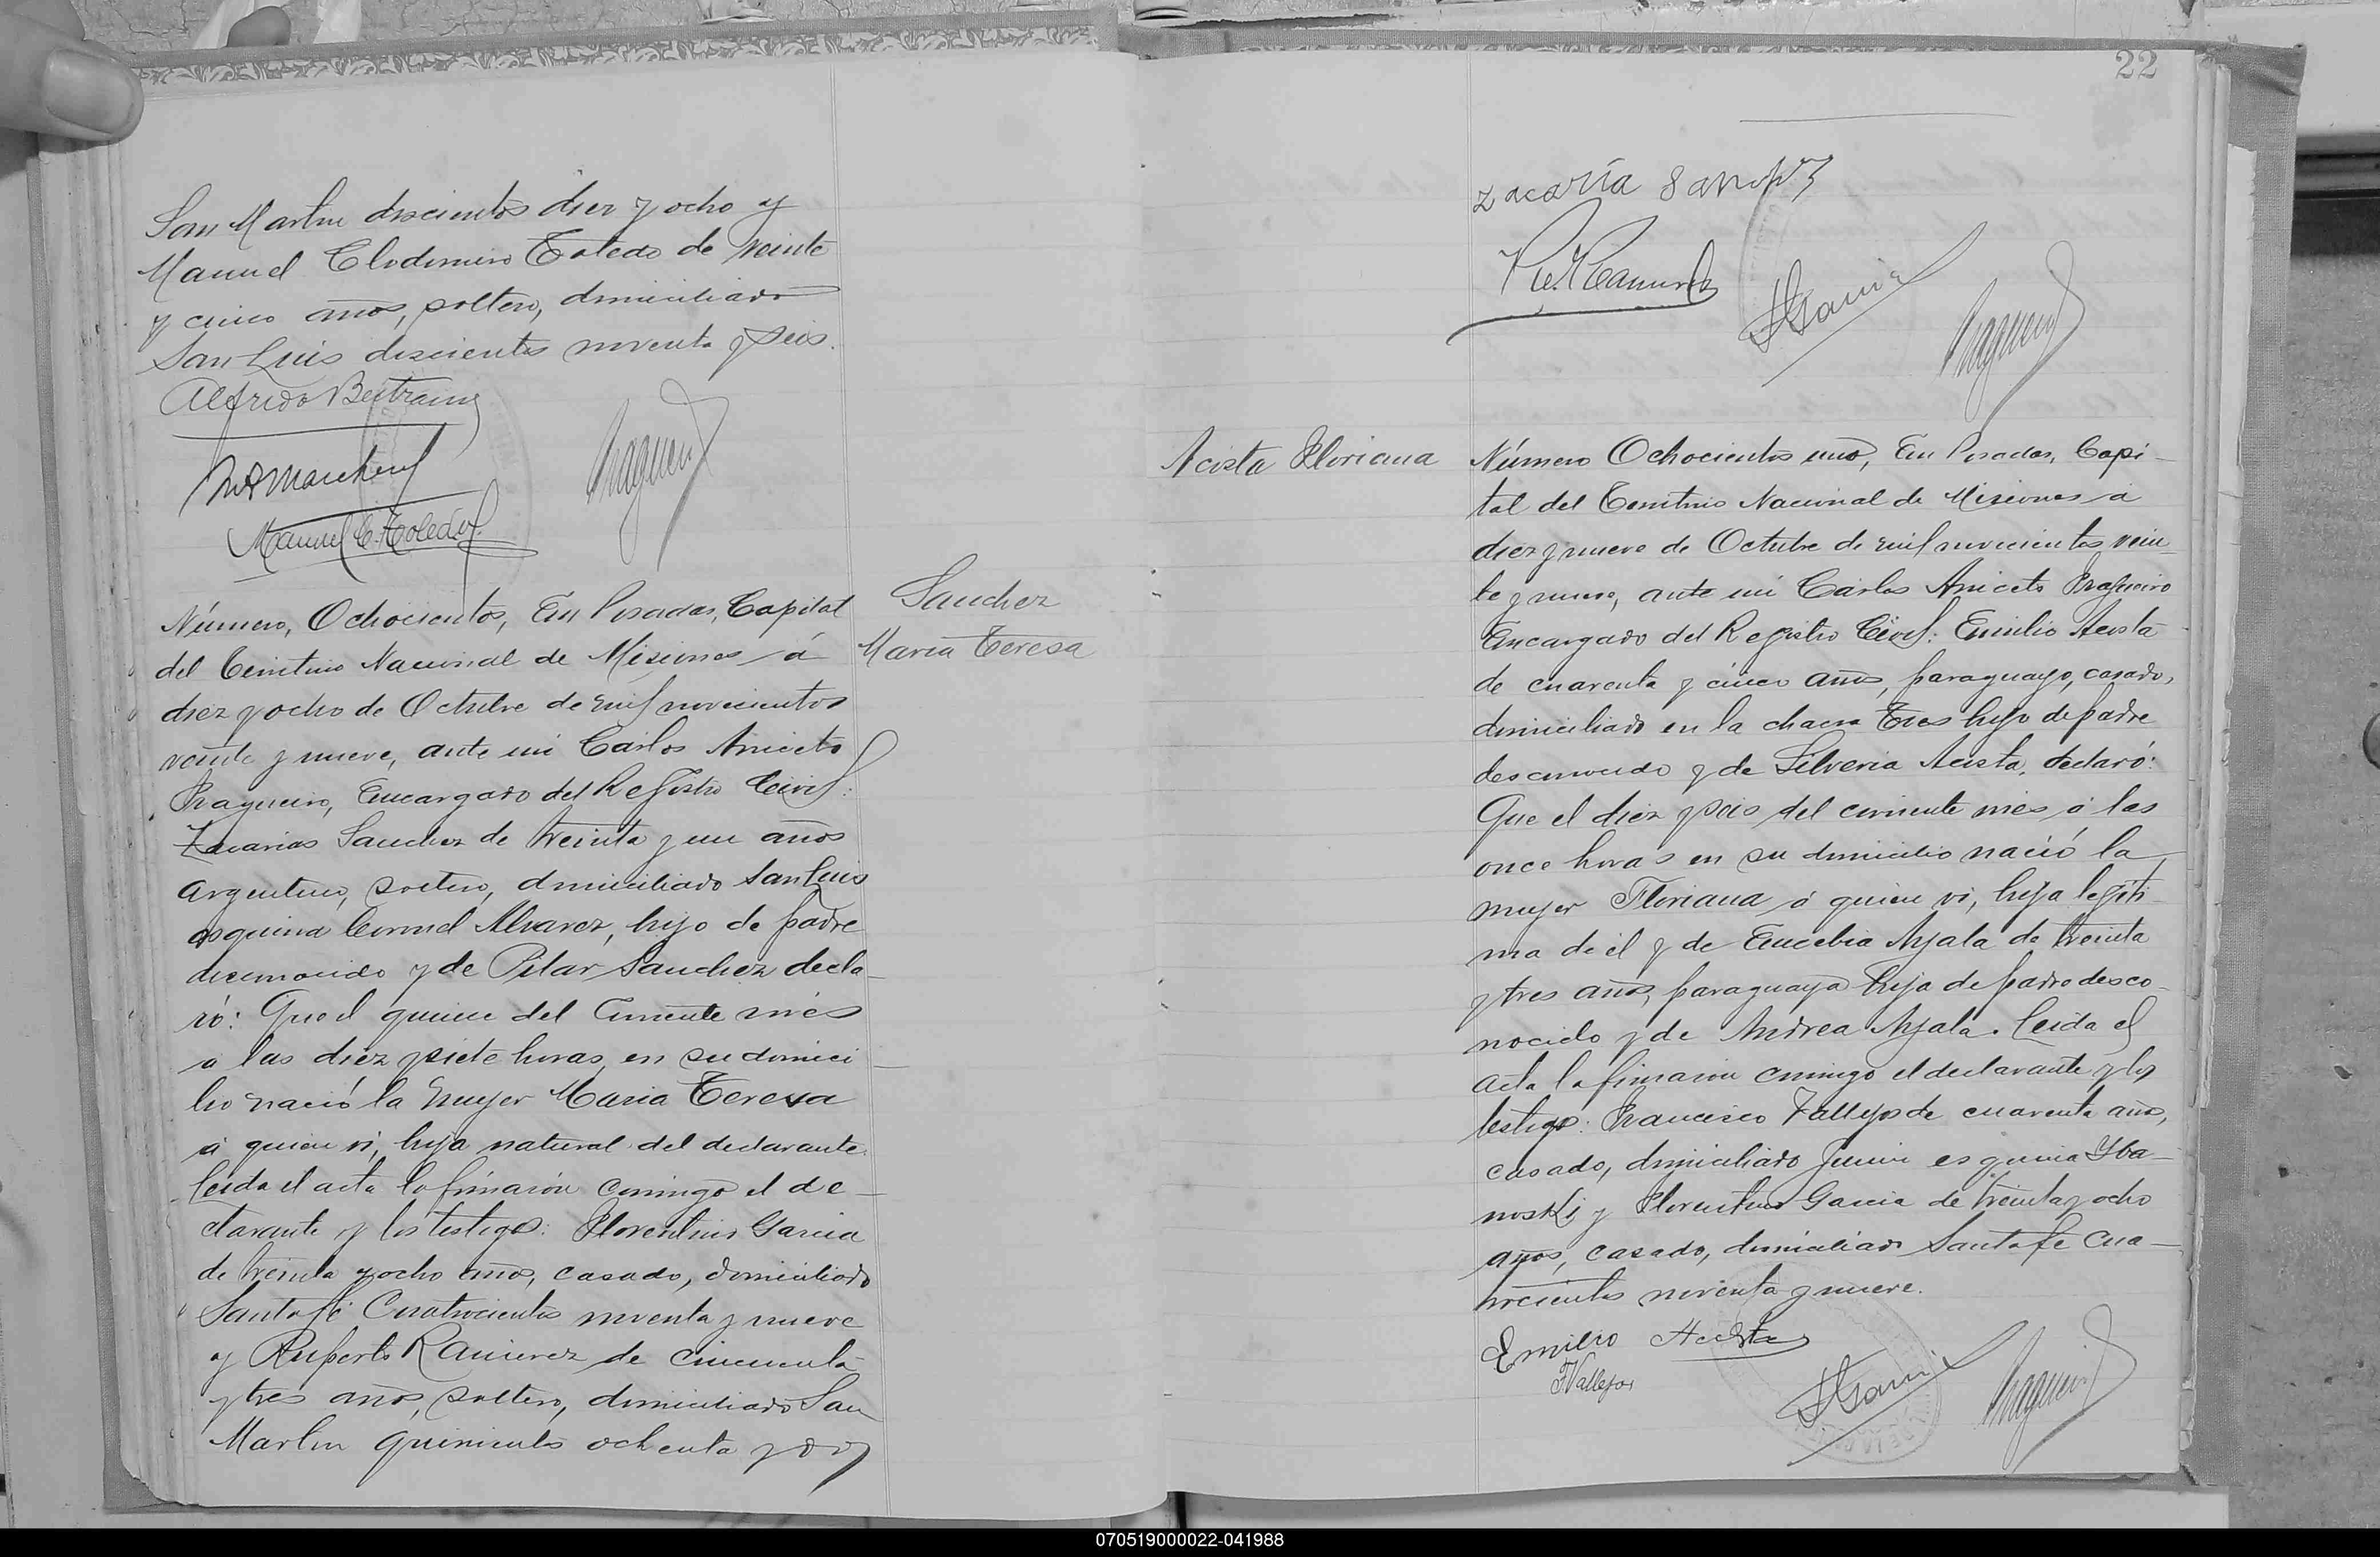 San Martin doscientos diez y ocho y
Manuel Clodomiro Toledo de veinte
y cinco años, soltero, domiciliado
San Luis doscientos noventa y seis.
Alfredo Beltrame
Manuel C. Toledo
Número, Ochocientos, En Posadas, Capital
del Territorio Nacional de Misiones á
diez y ocho de Octubre de mil novecientos
veinte y nueve, ante mi Carlos Aniceto
Fragueiro, Encargado del Registro Civil:
Zacarias Sanchez de treinta y un años
argentino, soltero, domiciliado San Luis
esquina Coronel Alvarez, hijo de padre
desconocido y de Pilar Sanchez decla-
ró: Que el quince del corriente mes
a las diez y siete horas, en su domici-
lio nació la mujer Maria Teresa
á quien vi, hija natural del declarante.
Leida el acta la firmaron conmigo el de-
clarante y los testigos: Florentino Garcia
de treinta y ocho años, casado, domiciliado
Santa fé Cuatrocientos noventa y nueve
y Ruperto Ramirez de cincuenta
y tres años, soltero, domiciliado San
Martin quinientos ochenta y dos
Sanchez
Maria Teresa
22
zacaria Sanchez
Acosta Floriana
Número Ochocientos uno, En Posadas, Capi-
tal del Territorio Nacional de Misiones á
diez y nueve de Octubre de mil novecientos vein-
te y nueve, ante mi Carlos Aniceto Fragueiro
Encargado del Registro Civil: Emilio Acosta
de cuarenta y cinco años, paraguayo, casado,
domiciliado en la chacra Tres hijo de padre
desconocido y de Silveria Acosta, declaró:
Que el diez y seis del corriente mes á las
once horas en su domicilio nació la
mujer Floriana á quien vi, hija legiti-
ma de él y de Eucebia Ayala de treinta
y tres años, paraguaya hija de padre desco-
nocido y de Andrea Ayala. Leida el
acta la firmaron conmigo el declarante y los
testigos: Francisco Vallejos de cuarenta años,
casado, domiciliado Junin esquina Yba-
noski y Florentino Garcia de treinta y ocho
años, casado, domiciliado Santa fe Cua-
trocientos noventa y nueve.
Emilio Acosta
F Vallejos
070519000022-041988